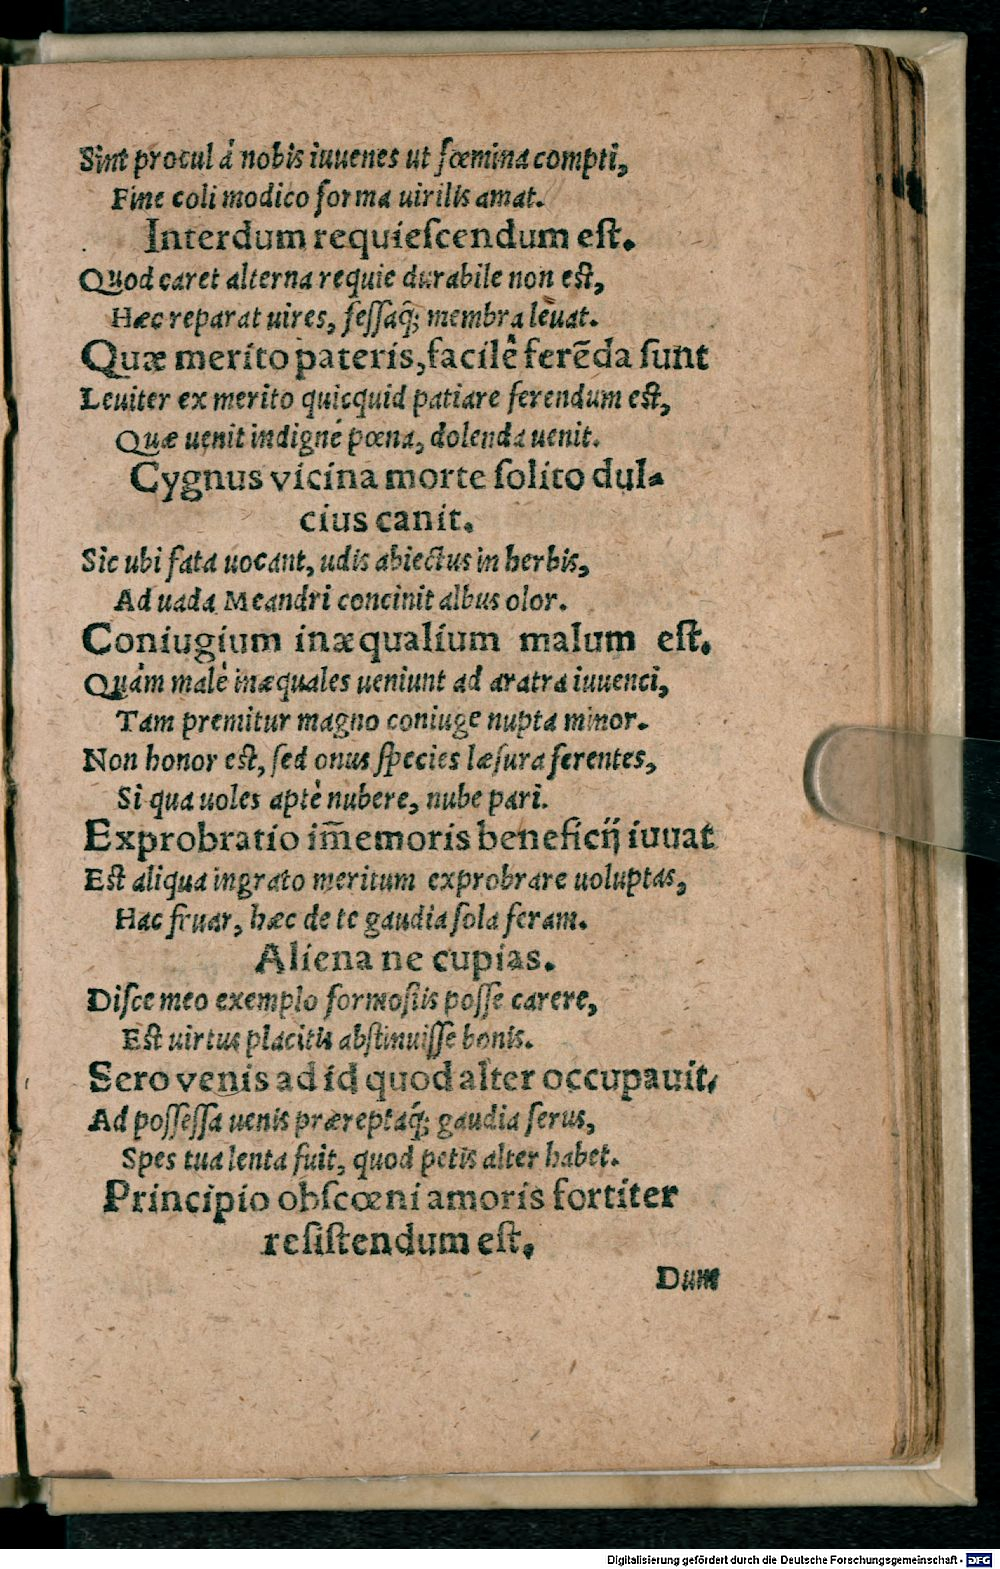 Sint procul á nobis iuuenes ut fœmina compti,
Fine coli modico forma uirilis amat.
Interdum requieſcendum eſt.
Quod caret alterna requie durabile non eſt,
Hæc reparat uires, feſſaq́; membra leuat.
Quæ merito pateris, facilê ferēda ſunt
Leuiter ex merito quicquid patiare ferendum eſt,
Quæ uenit indignè pœna, dolenda uenit.
Cygnus vicina morte ſolito dul⸗
cius canit.
Sic ubi fata uocant, udis abiectus in herbis,
Ad uada Meandri concinit albus olor.
Coniugium inæqualium malum eſt.
Quàm malè inæquales ueniunt ad aratra iuuenci,
Tam premitur magno coniuge nupta minor.
Non honor eſt, ſed onus ſpecies læſura ferentes,
Si qua uoles aptè nubere, nube pari.
Exprobratio im̄emoris beneficij iuuat
Eſt aliqua ingrato meritum exprobrare uoluptas,
Hac fruar, hæc de te gaudia ſola feram.
Aliena ne cupias.
Diſce meo exemplo formoſiis poſſe carere,
Eſt uirtus placitis abſtinuiſſe bonis.
Sero venis ad id quod alter occupauit,
Ad poſſeſſa uenis præreptaq́; gaudia ſerus,
Spes tua lenta fuit, quod petis alter habet.
Principio obſcœni amoris fortiter
reſiſtendum eſt,
Dum
Digitalisierung gefördert durch die Deutsche Forschungsgemeinschaft - DFG